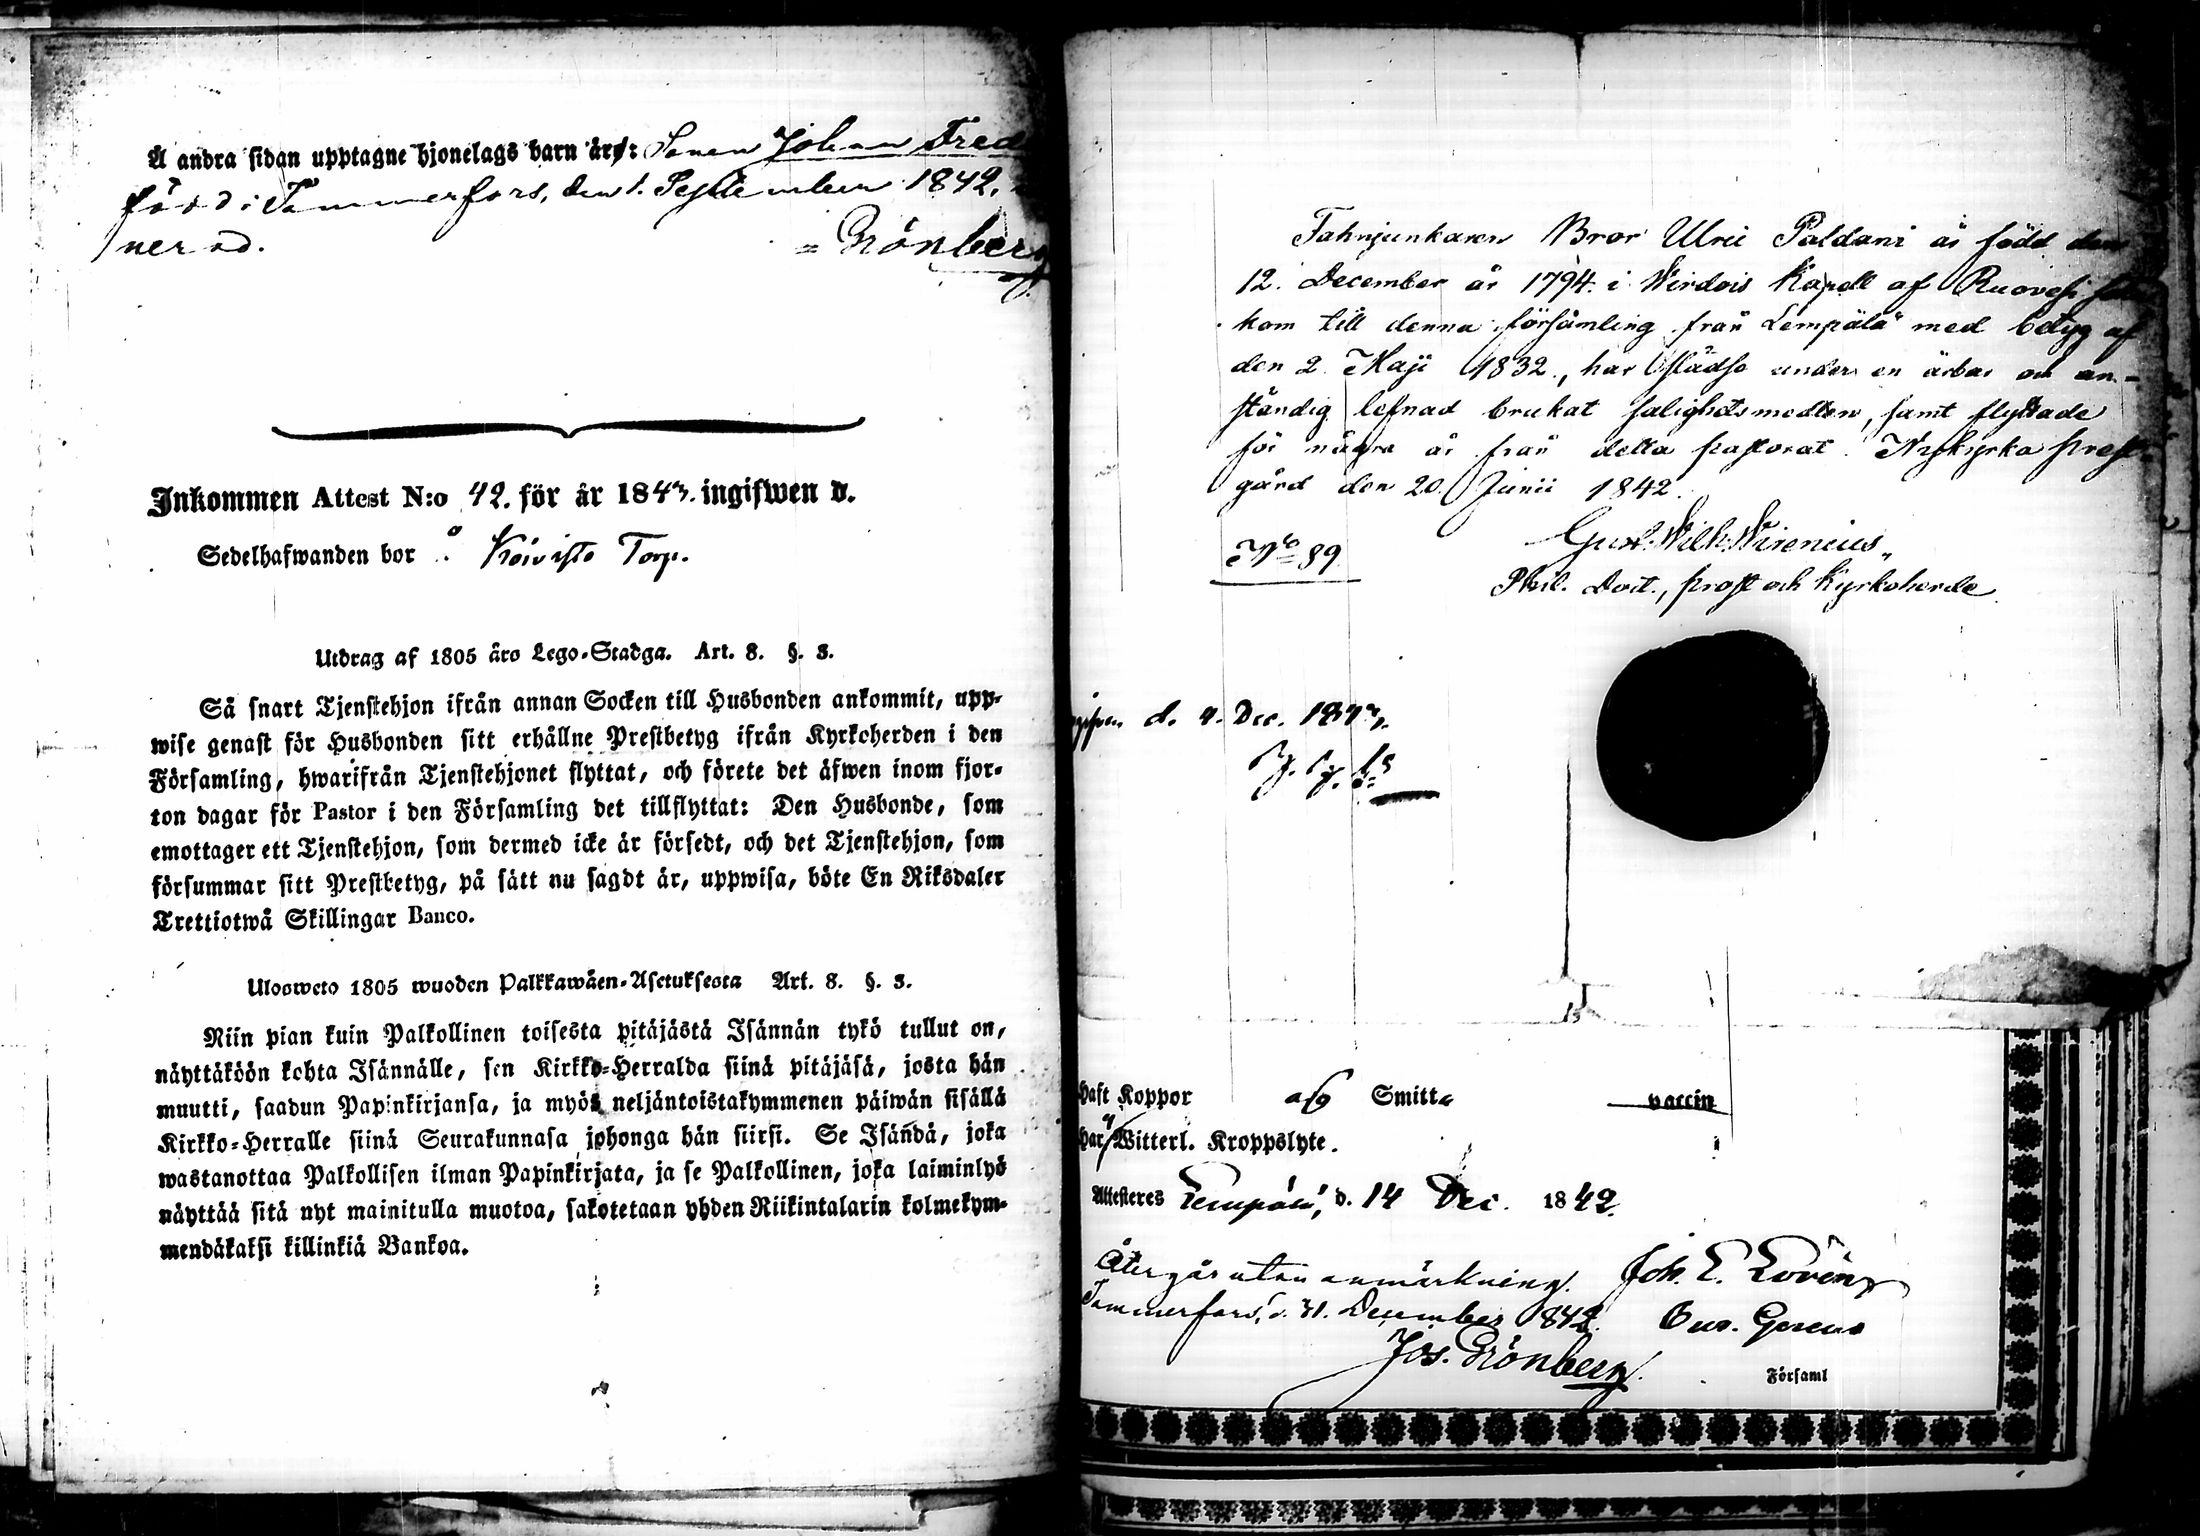 Å andra sidan upptagne hjonelags barn äro: Sonen Johan Fred
född i Tammerfors, den 1. September 1842,
nerad. = Grönberg
Inkommen Attest N:o 42. för år 1843. ingifwen d.
Sedelhafwanden bor å Koivisto Torp.
Utdrag af 1805 års Lego-Stadga. Art. 8. §. 3.
Så snart Tjenstehjon ifrån annan Socken till Husbonden ankommit, upp-
wise genast för Husbonden sitt erhållne Prestbetyg ifrån Kyrkoherden i den
Församling, hwarifrån Tjenstehjonet flyttat, och förete det äfwen inom fjor-
ton dagar för Pastor i den Församling det tillflyttat: Den Husbonde, som
emottager ett Tjenstehjon, som dermed icke är försedt, och det Tjenstehjon, som
försummar sitt Prestbetyg, på sätt nu sagdt är, uppwisa, böte En Riksdaler
Trettiotwå Skillingar Banco.
Ulosweto 1805 wuoden Palkkawäen-Asetuksesta Art. 8. §. 3.
Niin pian kuin Palkollinen toisesta pitäjästä Isännän tykö tullut on,
näyttäköön kohta Isännälle, sen Kirkko-Herralda siinä pitäjäsä, josta hän
muutti, saadun Papinkirjansa, ja myös neljäntoistakymmenen päiwän sisällä
Kirkko-Herralle siinä Seurakunnasa johonga hän siirsi. Se Isändä, joka
wastanottaa Palkollisen ilman Papinkirjata, ja se Palkollinen, joka laiminlyö
näyttää sitä nyt mainitulla muotoa, sakotetaan yhden Riikintalarin kolmekym-
mendäkaksi killinkiä Bankoa.
Fahnjunkaren Bror Ulric Paldani är född den
12. December år 1794. i Wirdois Kapell af Ruovesi
kom till denna församling från Lempälä med betyg af
den 2. Maji 1832., har städse under en ärbar och an-
ständig lefnad brukat salighetsmedlen, samt flyttade
för några år från detta pastorat. Nykyrka prest-
gård den 20. Junii 1842.
Gust. Wilh. Wirenius,
No 89.
Phil. Doct., prost och Kyrkoherde
d. 4. Dec. 1843.
haft Koppor af Smitta vaccin
har Witterl. Kroppslyte.
Attesteres Lempälä, d. 14 Dec. 1842.
Återgår utan anmärkning. Joh. E. Lovén
Tammerfors, d. 31. December 1842.
Jos. Grönberg.
Församl